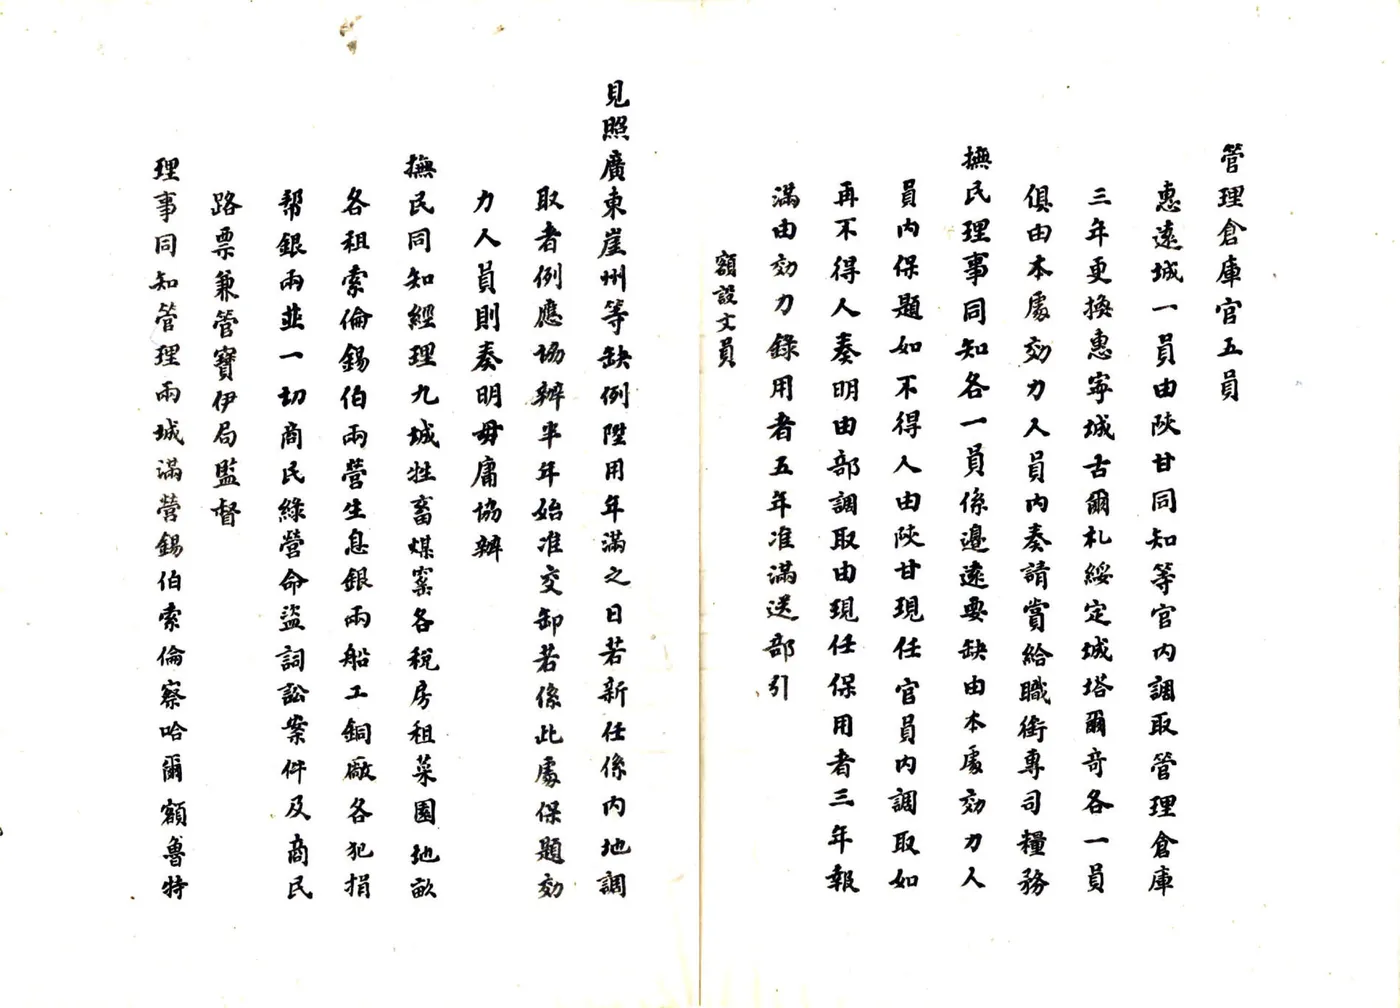 管理倉庫官五員
惠遠城一員由陝甘同知等官內調取管理倉庫
三年更換惠寧城古爾札綏定城塔爾奇各一員
俱由本處効力人員內奏請賞給職銜專司糧務
撫民理事同知各一員係邊遠要缺由本處効力人
員內保題如不得人由陝甘現任官員內調取如
再不得人奏明由部調取由現任保用者三年報
滿由効力錄用者五年准滿送部引
額設文員
見照廣東崖州等缺例陞用年滿之日若新任係內地調
取者例應協辦半年始准交卸若係此處保題効
力人員則奏明毋庸協辦
撫民同知經理九城牲畜煤窯各稅房租菜園地畝
各租索倫錫伯兩營生息銀兩船工銅廠各犯捐
帮銀兩並一切商民綠營命盜詞訟案件及商民
路票兼管寶伊局監督
理事同知管理兩城滿營錫伯索倫察哈爾額魯特